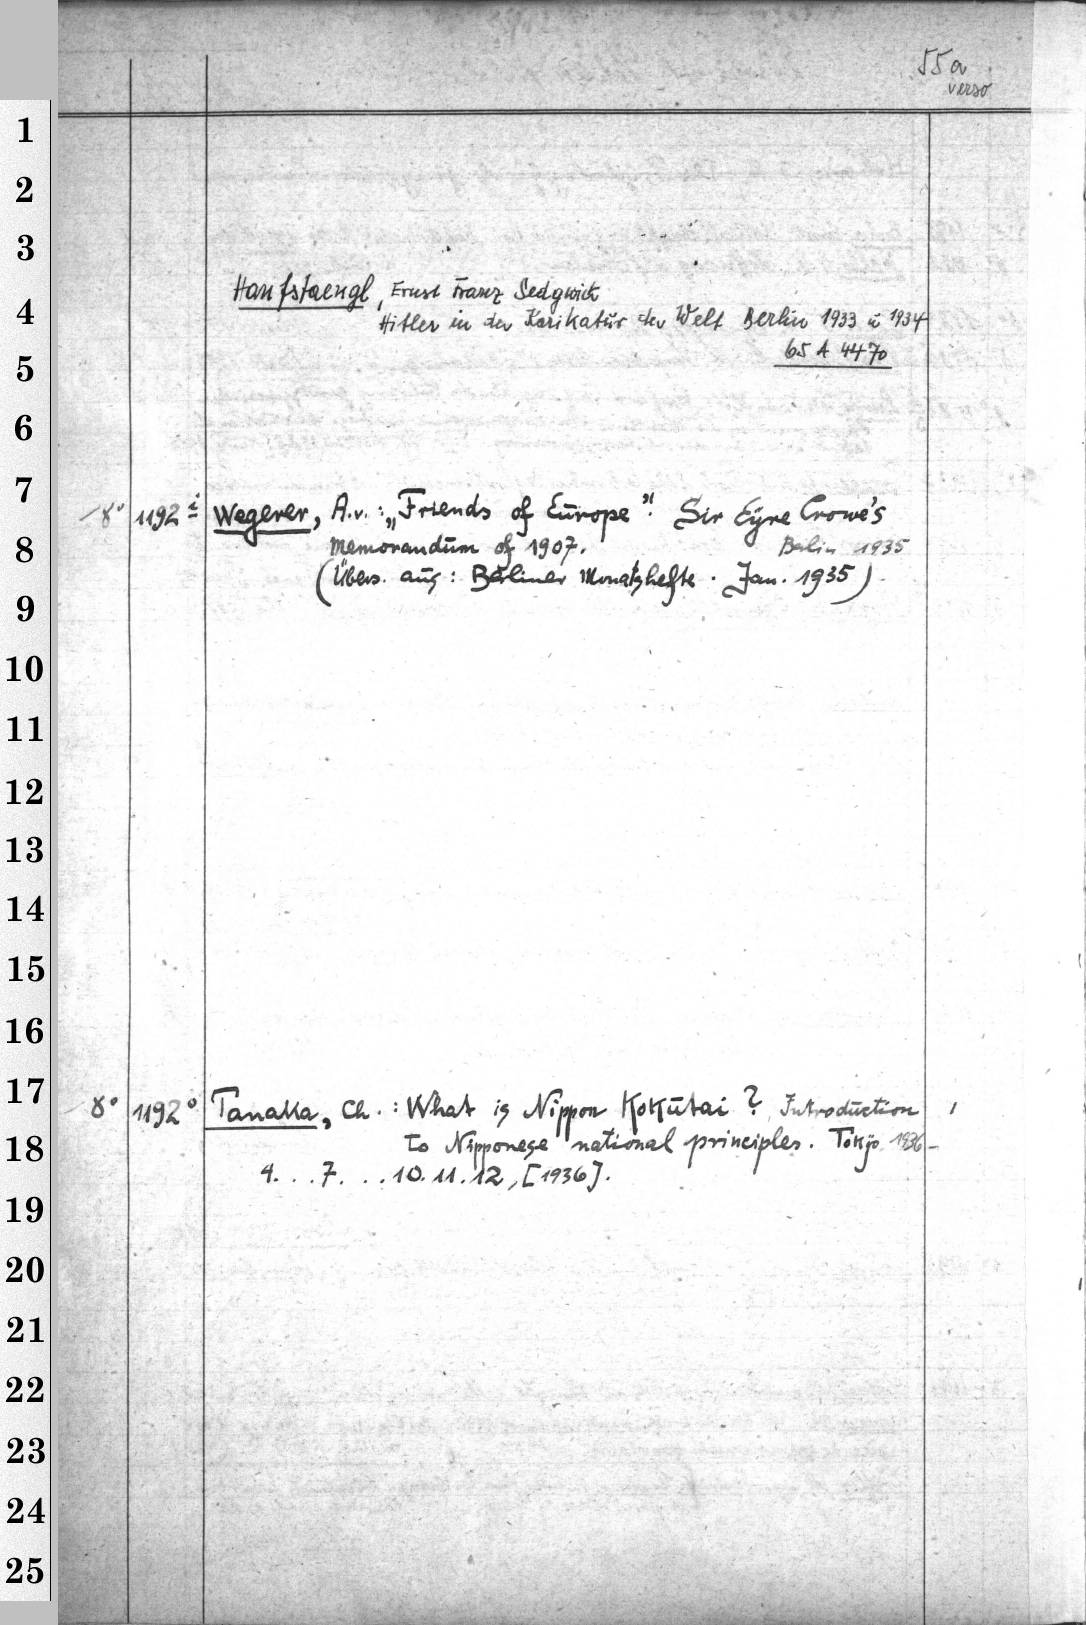 55a
verso
Hanfstaengl, Ernst Franz Sedgwick
Hitler in der Karikatur der Welt Berlin 1933 u 1934
65 A 4470
8° 1192 i Wegerer, A.v.: „Friends of Europe". Sir Eyre Crowe's
Memorandum of 1907. Berlin 1935
(Übers. aus: Berliner Monatshefte. Jan. 1935).
8° 1192° Tanaka, Ch.: What is Nippon Kokutai? Introduction
to Nipponese national principles. Tokyo 1936-
4. . . 7. . . 10. 11. 12, [1936].
1
2
3
4
5
6
7
8
9
10
11
12
13
14
15
16
17
18
19
20
21
22
23
24
25